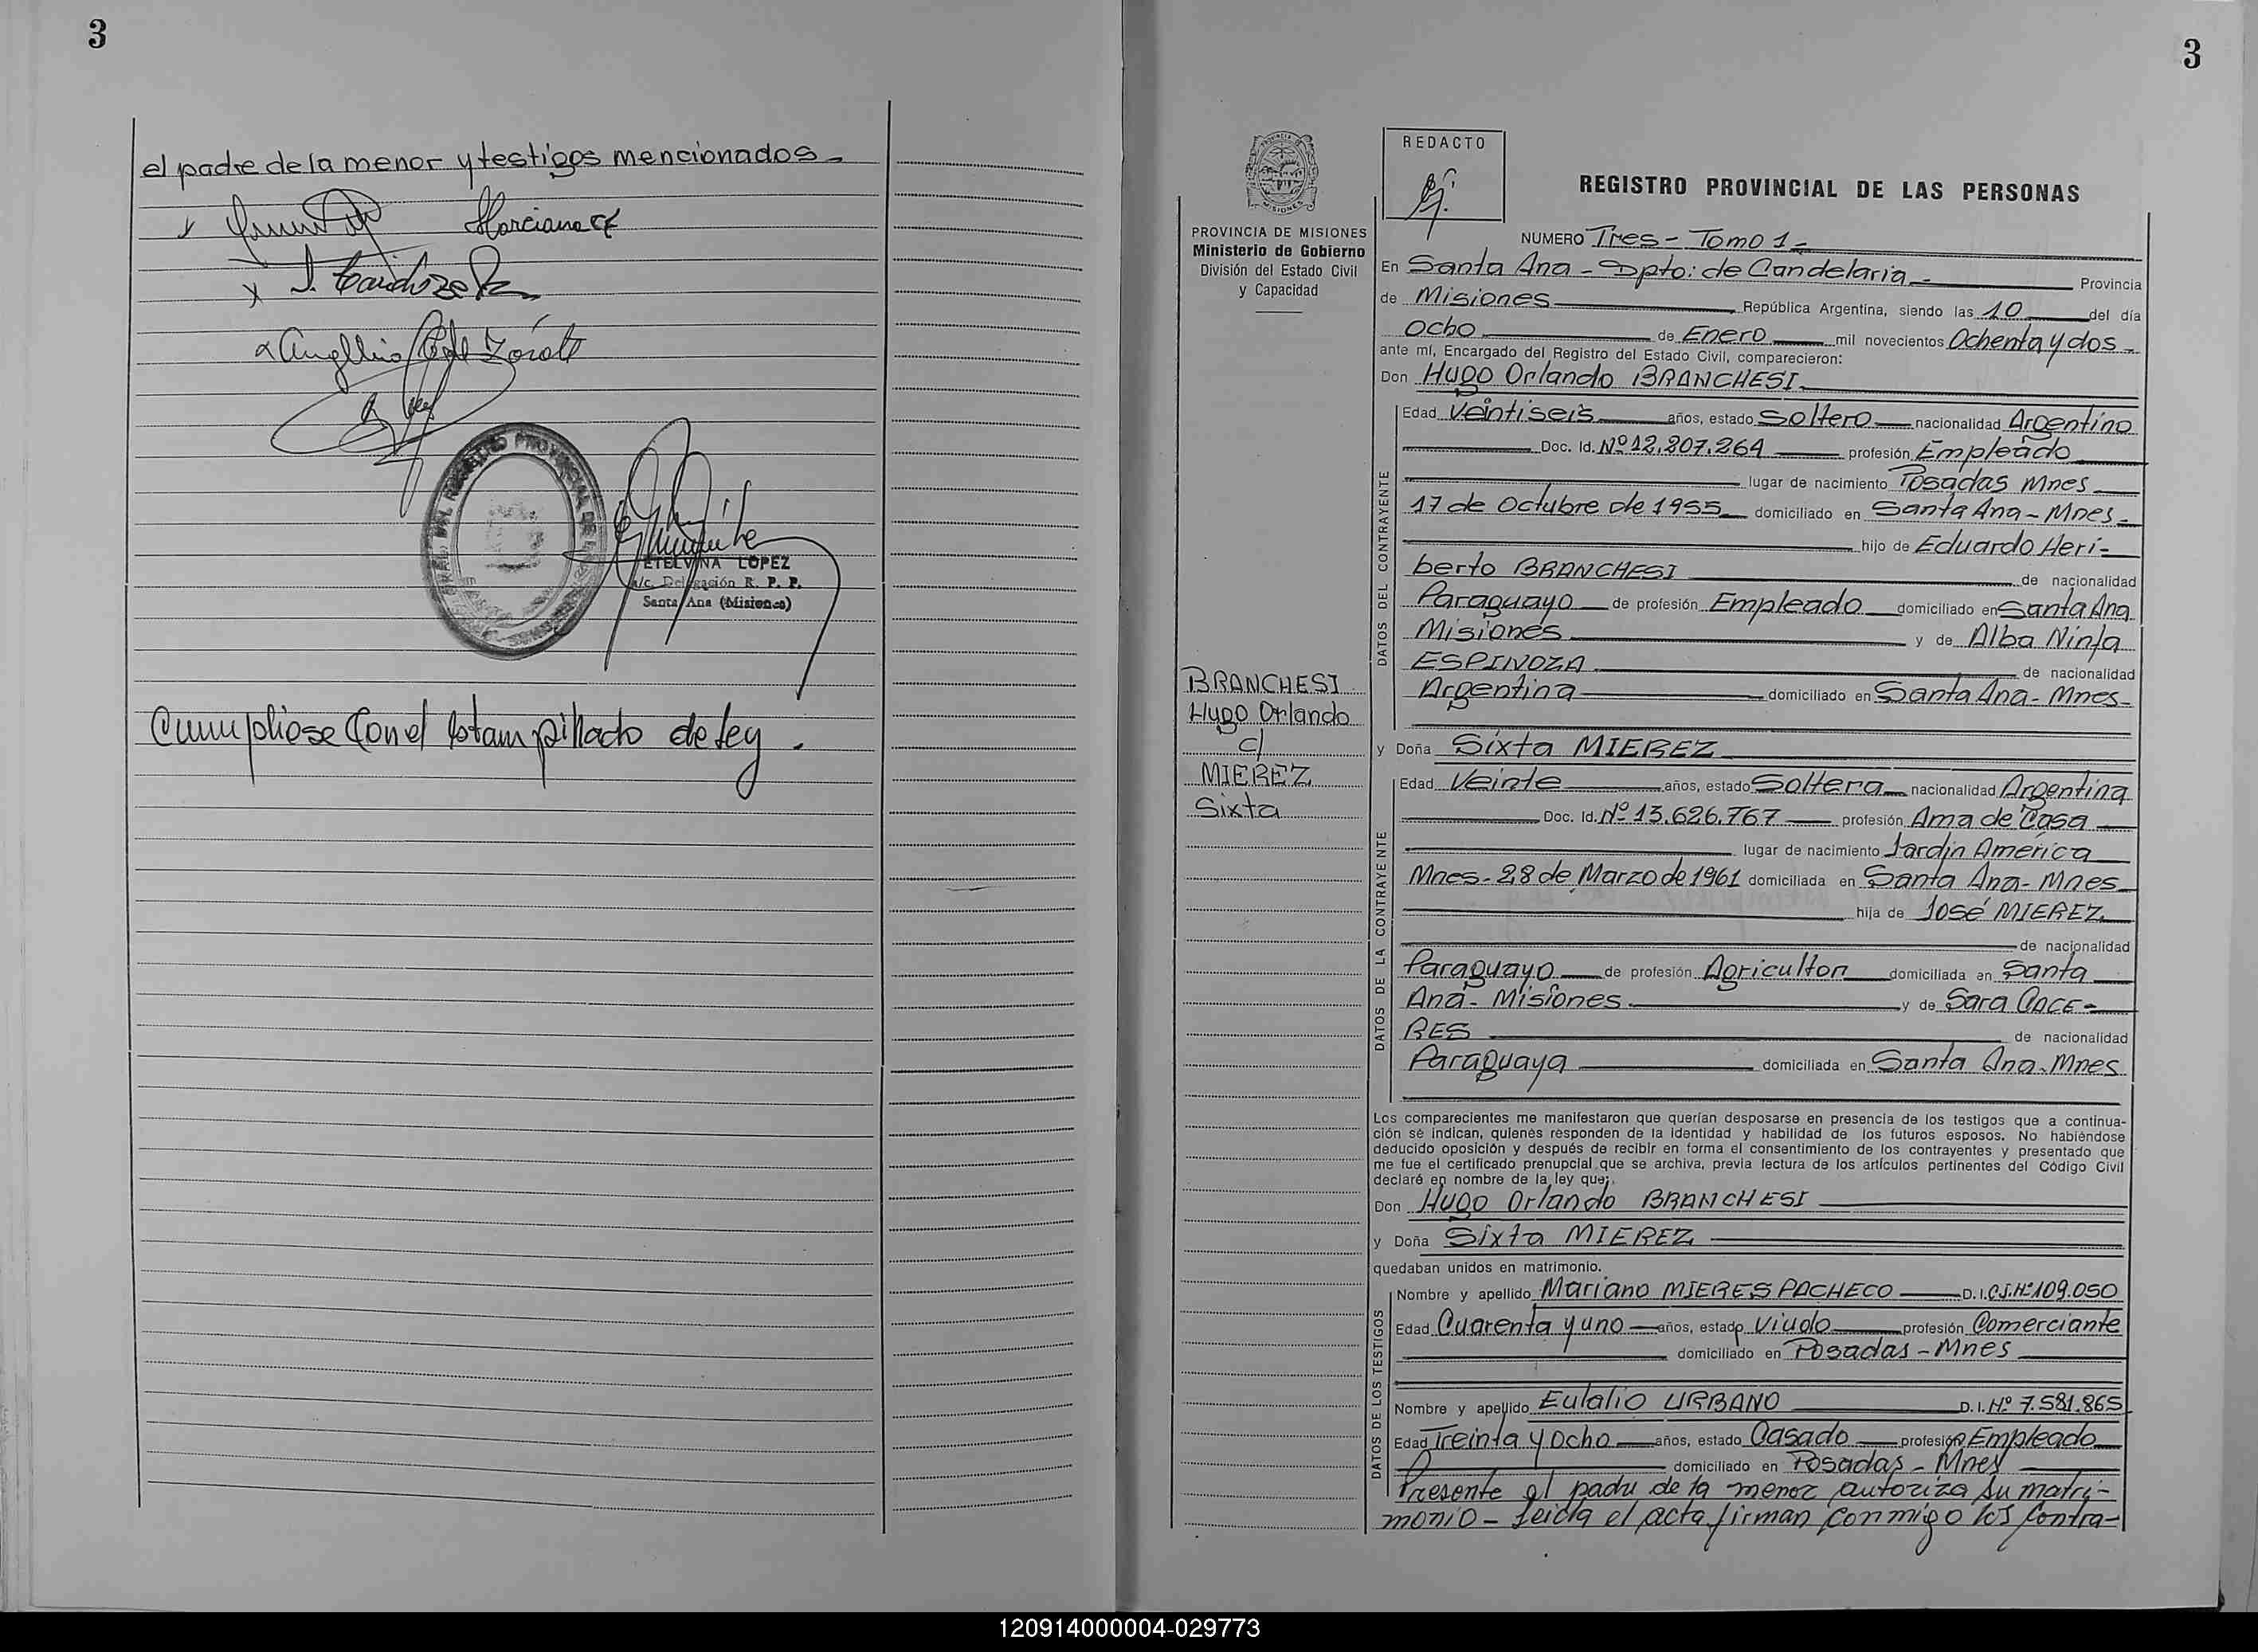 3
el padre de la menor y testigos mencionados-
ETELVINA LOPEZ
a/c. Delegación R. P. P.
Santa Ana (Misiones)
Cumpliose con el estampillado de ley.
3
REDACTO
REGISTRO PROVINCIAL DE LAS PERSONAS
PROVINCIA DE MISIONES
Ministerio de Gobierno
División del Estado Civil
y Capacidad
NUMERO Tres- Tomo 1-
En Santa Ana - Dpto: de Candelaria - Provincia
de Misiones República Argentina, siendo las 10 del día
ocho de Enero mil novecientos Ochenta y dos-
ante mí, Encargado del Registro del Estado Civil, comparecieron:
Don Hugo Orlando BRANCHESI
DATOS DEL CONTRAYENTE
Edad Veintiseis años, estado Soltero nacionalidad Argentino
Doc. Id. Nº 12.207.264 profesión Empleado
lugar de nacimiento Posadas Mnes
17 de Octubre de 1955 domiciliado en Santa Ana-Mnes-
hijo de Eduardo Heri-
berto BRANCHESI de nacionalidad
Paraguayo de profesión Empleado domiciliado en Santa Ana
Misiones y de Alba Ninfa
ESPINOZA de nacionalidad
Argentina domiciliado en Santa Ana-Mnes-
BRANCHESI
Hugo Orlando
c/
MIEREZ
Sixta
y Doña Sixta MIEREZ
DATOS DE LA CONTRAYENTE
Edad Veinte años, estado Soltera nacionalidad Argentina
Doc. Id. Nº 13.626.767 profesión Ama de Casa
lugar de nacimiento Jardin America
Mnes-28 de Marzo de 1961 domiciliada en Santa Ana-Mnes
hija de José MIEREZ
de nacionalidad
Paraguayo de profesión Agricultor domiciliada en Santa
Ana-Misiones y de Sara CACE-
RES de nacionalidad
Paraguaya domiciliada en Santa Ana-Mnes
Los comparecientes me manifestaron que querían desposarse en presencia de los testigos que a continua-
ción se indican, quienes responden de la identidad y habilidad de los futuros esposos. No habiéndose
deducido oposición y después de recibir en forma el consentimiento de los contrayentes y presentado que
me fue el certificado prenupcial que se archiva, previa lectura de los artículos pertinentes del Código Civil
declaré en nombre de la ley que:
Don Hugo Orlando BRANCHESI
y Doña Sixta MIEREZ
quedaban unidos en matrimonio.
DATOS DE LOS TESTIGOS
Nombre y apellido Mariano MIERES PACHECO D.I. C.I. Nº 109.050
Edad Cuarenta y uno años, estado Viudo profesión Comerciante
domiciliado en Posadas-Mnes
Nombre y apellido Eulalio URBANO D.I. Nº 7.581.865
Edad Treinta y ocho años, estado Casado profesión Empleado
domiciliado en Posadas-Mnes
Presente el padre de la menor autoriza su matri-
monio- Leida el acta firman conmigo los contra-
120914000004-029773